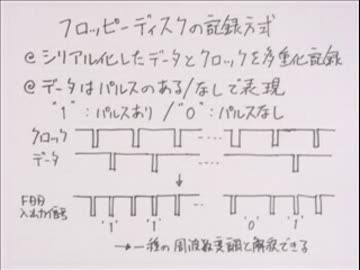 フロッピーディスクの記録方式
@ シリアル化したデータとクロックを多重化記録
@ データはパルスのある/なしで表現
"1":パルスあり / "0":パルスなし
クロック
データ
FDD
入出力信号
'1' '1' '0' '1'
→一種の周波数変調と解釈できる